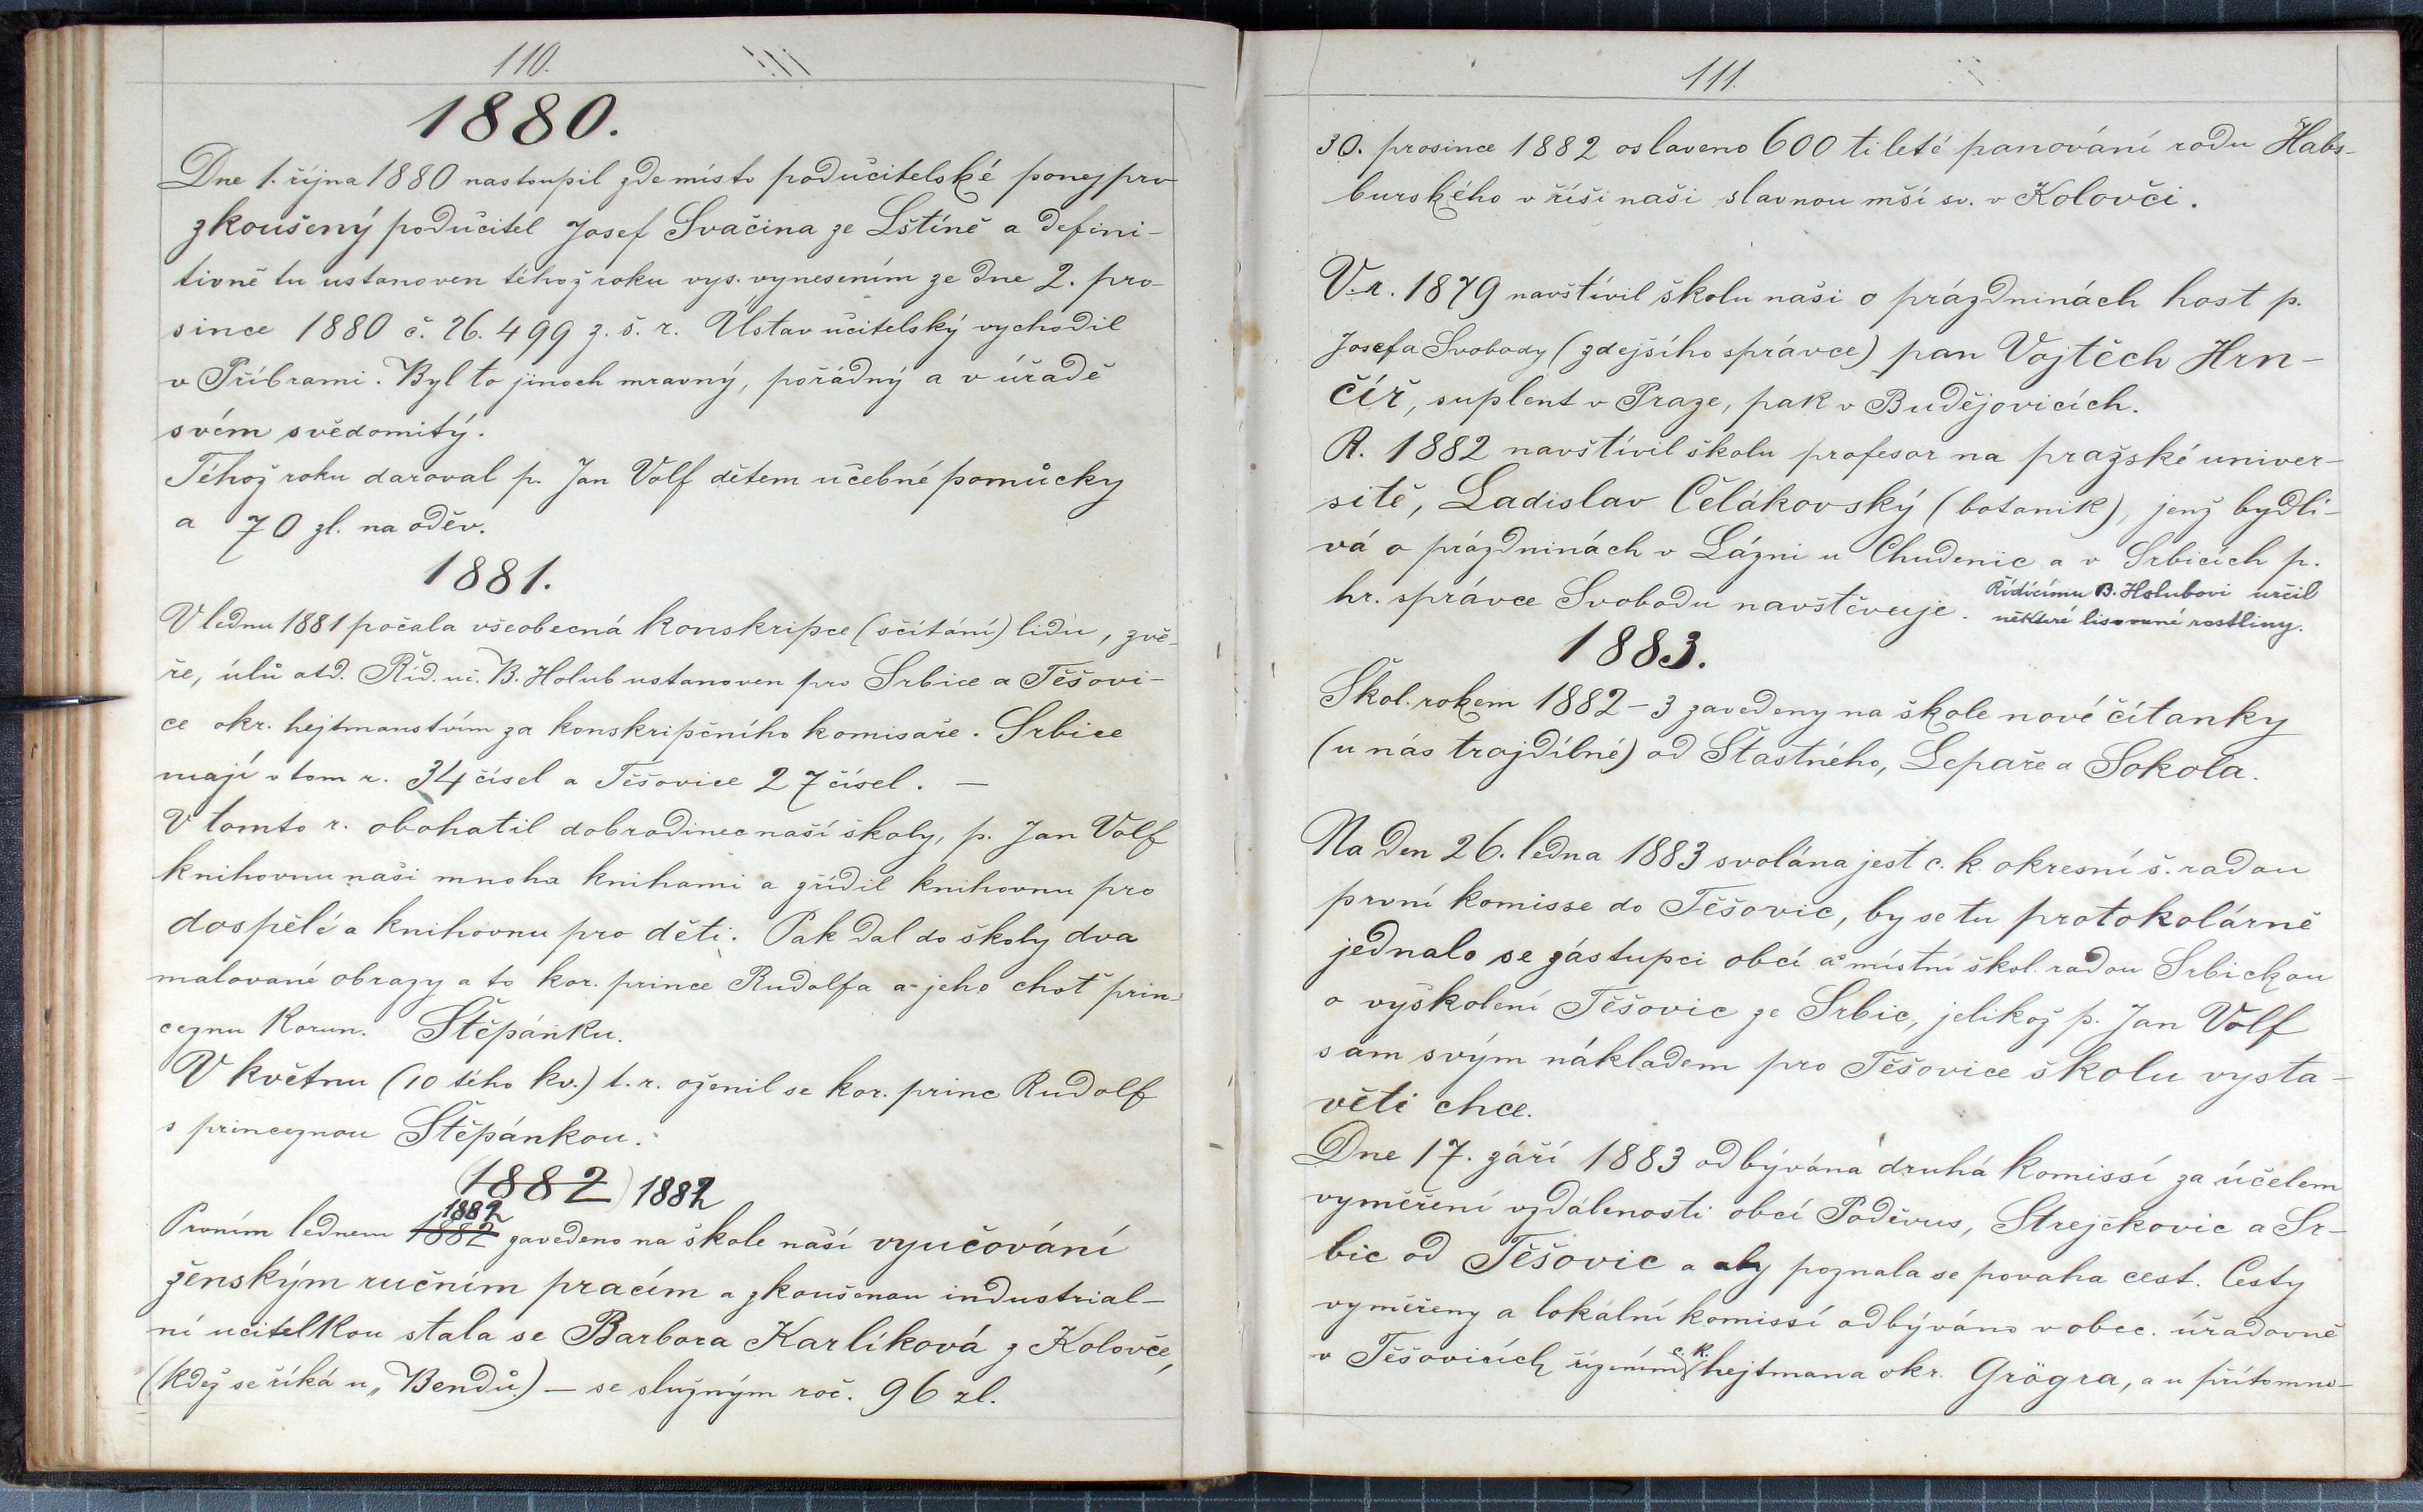 110.
1880.
Dne 1. října 1880 nastoupil zde místo podučitelské ponejprv
zkoušený podučitel Josef Svačina ze Lštíně a defini-
tivně tu ustanoven téhož roku vys. vynesením ze dne 2. pro-
since 1880 č. 26.499 z. š. r. Ústav učitelský vychodil
v Příbrami. Byl to jinoch mravný, pořádný a v úřadě
svém svědomitý.
Téhož roku daroval p. Jan Volf dětem učebné pomůcky
a 70 zl. na oděv.
1881.
V lednu 1881 počala všeobecná konskripce (sčítání) lidu, zvě-
ře, úlů atd. Říd. uč. B. Holub ustanoven pro Srbice a Těšovi-
ce okr. hejtmanstvím za konskripčního komisaře. Srbice
mají v tom r. 34 čísel a Těšovice 27 čísel. —
V tomto r. obohatil dobrodinec naší školy, p. Jan Volf
knihovnu naši mnoha knihami a zřídil knihovnu pro
dospělé a knihovnu pro děti. Pak dal do školy dva
malované obrazy a to kor. prince Rudolfa a jeho choť prin-
ceznu Korun. Štěpánku.
V květnu (10 tého kv.) t. r. oženil se kor. princ Rudolf
s princeznou Štěpánkou.
(1882) 1882
1882
Prvním lednem 1882 zavedeno na škole naší vyučování
ženským ručním pracím a zkoušenou industrial-
ní učitelkou stala se Barbora Karlíková z Kolovče,
(kdež se říká u „Bendů) — se služným roč. 96 zl.
111.
30. prosince 1882 oslaveno 600 tileté panování rodu Habs-
burského v říši naši slavnou mší sv. v Kolovči.
V. r. 1879 navštívil školu naši o prázdninách host p.
Josefa Svobody (zdejšího správce) pan Vojtěch Hrn-
číř, suplent v Praze, pak v Budějovicích.
R. 1882 navštívil školu profesor na pražské univer-
sitě, Ladislav Čelákovský (botanik), jenž bydlí-
vá o prázdninách v Lázni u Chudenic a v Srbicích p.
hr. správce Svobodu navštěvuje. Řídícímu B. Holubovi určil
některé lisované rostliny.
1883.
Škol. rokem 1882-3 zavedeny na škole nové čítanky
(u nás trojdílné) od Šťastného, Lepaře a Sokola.
Na den 26. ledna 1883 svolána jest c. k. okresní š. radou
první komisse do Těšovic, by se tu protokolárně
jednalo se zástupci obcí a místní škol. radou Srbickou
o vyškolení Těšovic ze Srbic, jelikož p. Jan Volf
sám svým nákladem pro Těšovice školu vysta-
věti chce.
Dne 17. září 1883 odbývána druhá komissí za účelem
vyměření vzdálenosti obcí Poděvus, Strejčkovic a Sr-
bic od Těšovic a aby poznala se povaha cest. Cesty
vyměřeny a lokální komissí odbýváno v obec. úřadovně
v Těšovicích řízením c. k. hejtmana okr. Grögra, a u přítomno-